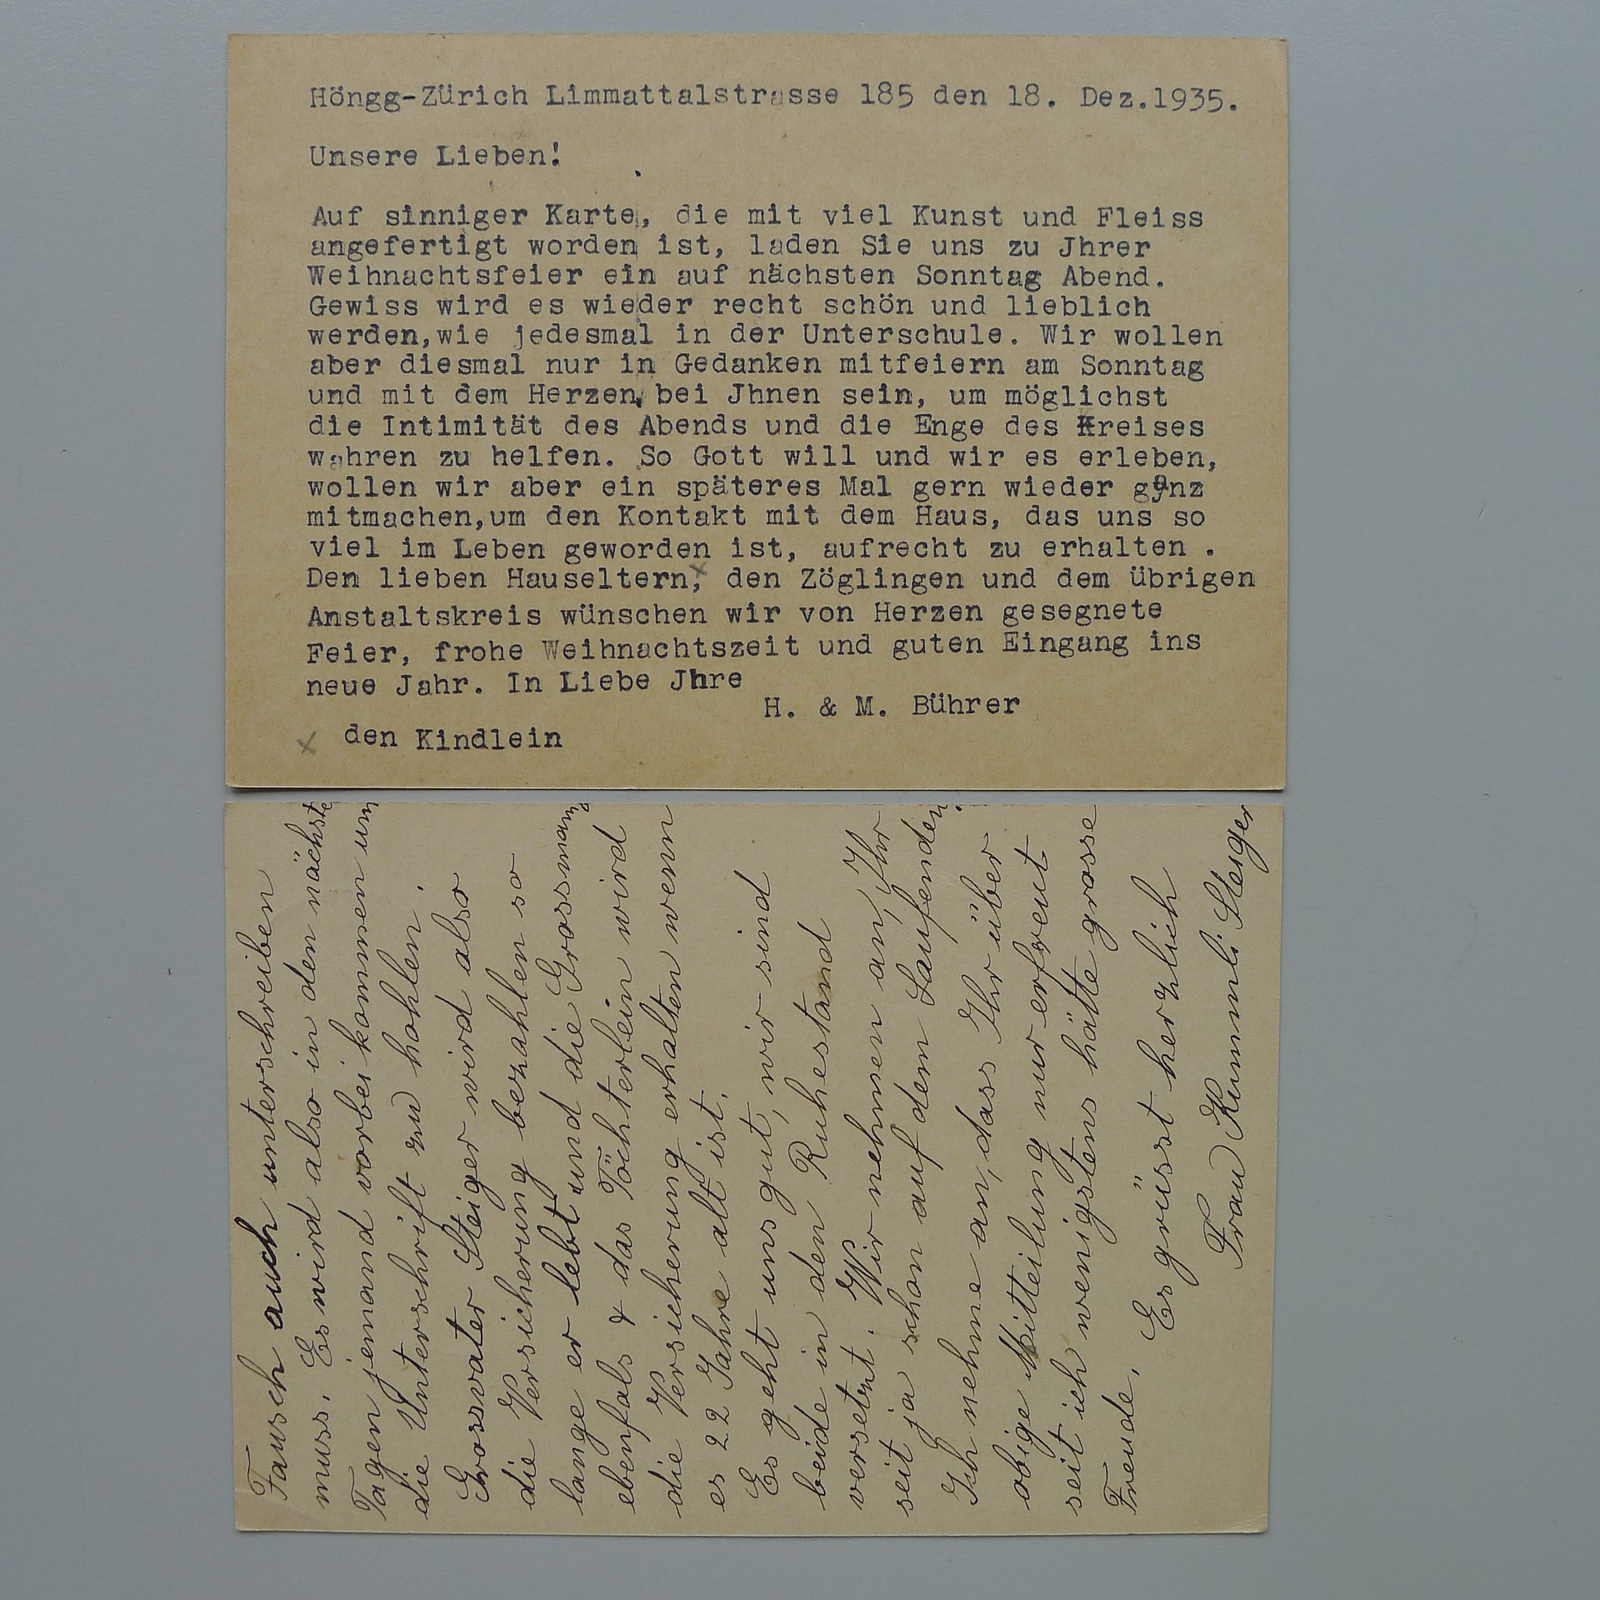 Höngg-Zürich Limmattalstrasse 185 den 18. Dez.1935.
Unsere Lieben!
Auf sinniger Karte, die mit viel Kunst und Fleiss
angefertigt worden ist, laden Sie uns zu Jhrer
Weihnachtsfeier ein auf nächsten Sonntag Abend.
Gewiss wird es wieder recht schön und lieblich
werden,wie jedesmal in der Unterschule. Wir wollen
aber diesmal nur in Gedanken mitfeiern am Sonntag
und mit dem Herzen bei Jhnen sein, um möglichst
die Intimität des Abends und die Enge des Kreises
wahren zu helfen. So Gott will und wir es erleben,
wollen wir aber ein späteres Mal gern wieder ganz
mitmachen,um den Kontakt mit dem Haus, das uns so
viel im Leben geworden ist, aufrecht zu erhalten .
Den lieben Hauseltern,x den Zöglingen und dem übrigen
Anstaltskreis wünschen wir von Herzen gesegnete
Feier, frohe Weihnachtszeit und guten Eingang ins
neue Jahr. In Liebe Jhre
H. & M. Bührer
x den Kindlein
Fausch auch unterschreiben
muss. Es wird also in den nächste
Tagen jemand vorbei kommen um
die Unterschrift zu hohlen.
Grossvater Steiger wird also
die Versicherung bezahlen so
lange er lebt und die Grossmama
ebenfals & das Töchterlein wird
die Versicherung erhalten wenn
es 22 Jahre alt ist.
Es geht uns gut, wir sind
beide in den Ruhestand
versetzt. Wir nehmen an, Ihr
seit ja schon auf dem Laufenden.
Ich nehme an, dass Ihr über
obige Mitteilung nur erfreut
seit ich wenigstens hätte grosse
Freude. Es grüsst herzlich
Frau Kummli Steiger